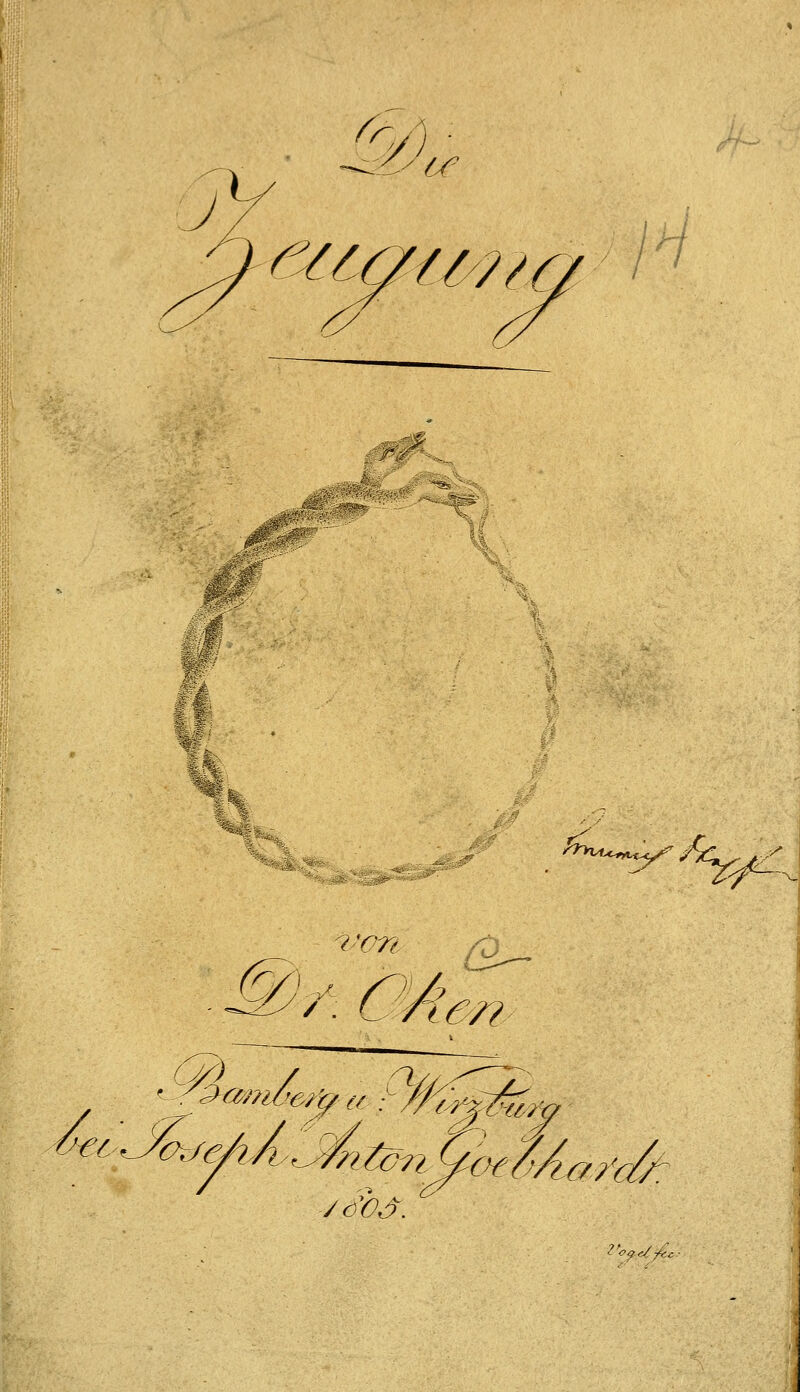 Die
Zeugung
14
von
Dr. Oken
Bamberg u: Wirzburg
bei Joseph Anton Goebhardt.
1805.
Vogel fec: